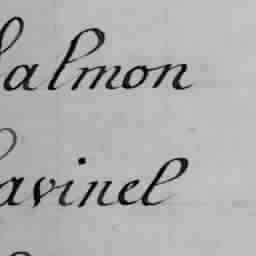 almon
avinel